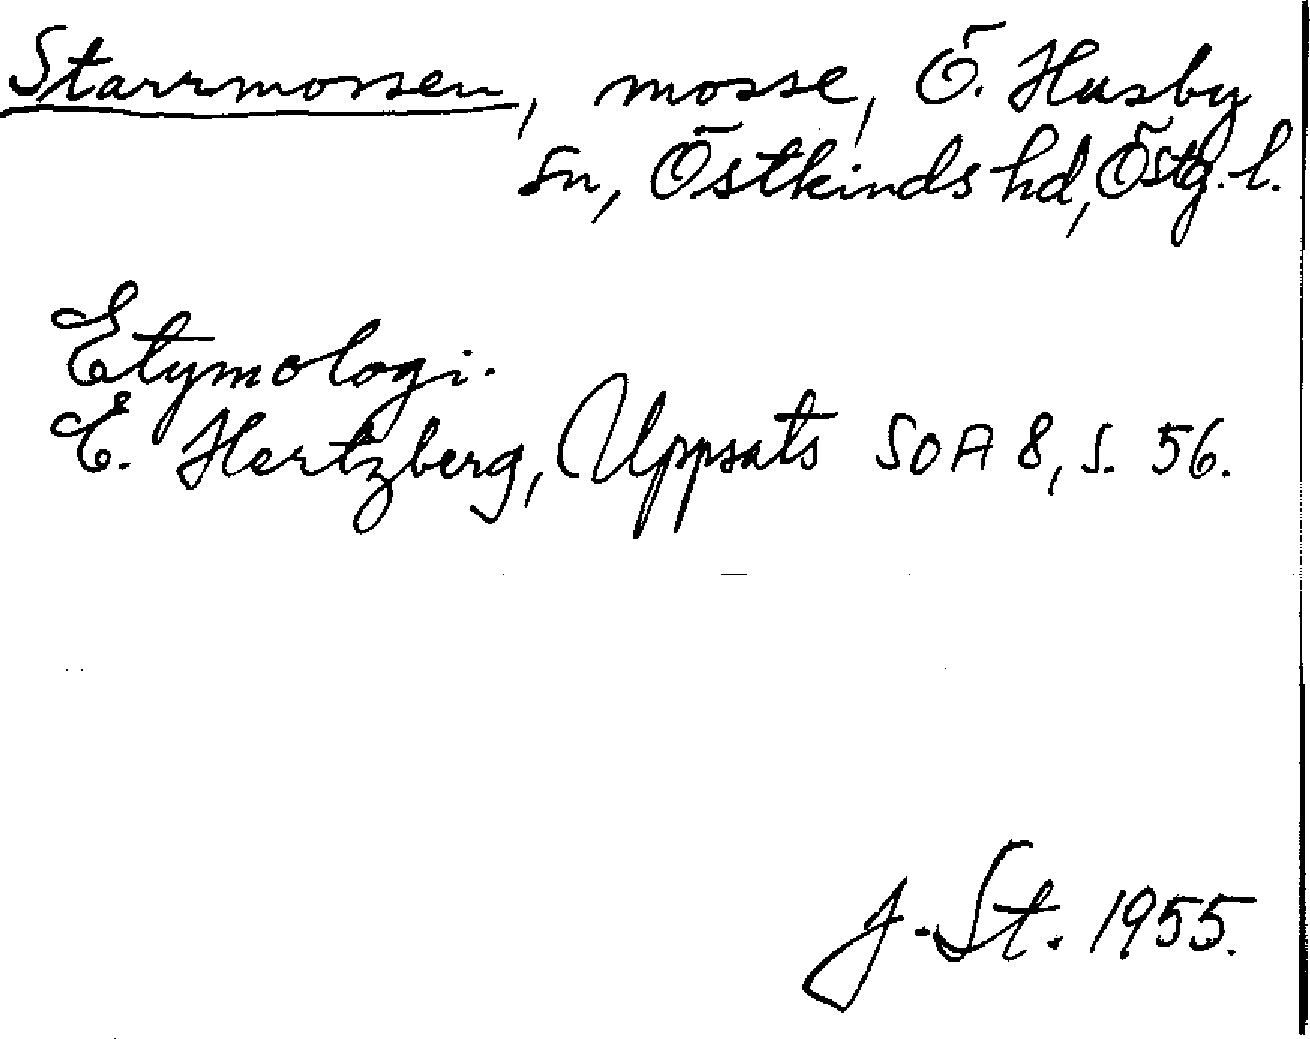 Starrmossen, mosse, Ö. Husby
sn, Östkinds hd, Östg. l.
Etymologi.
E. Hertzberg, Uppsats SOA 8, s. 56.
J. St. 1955.